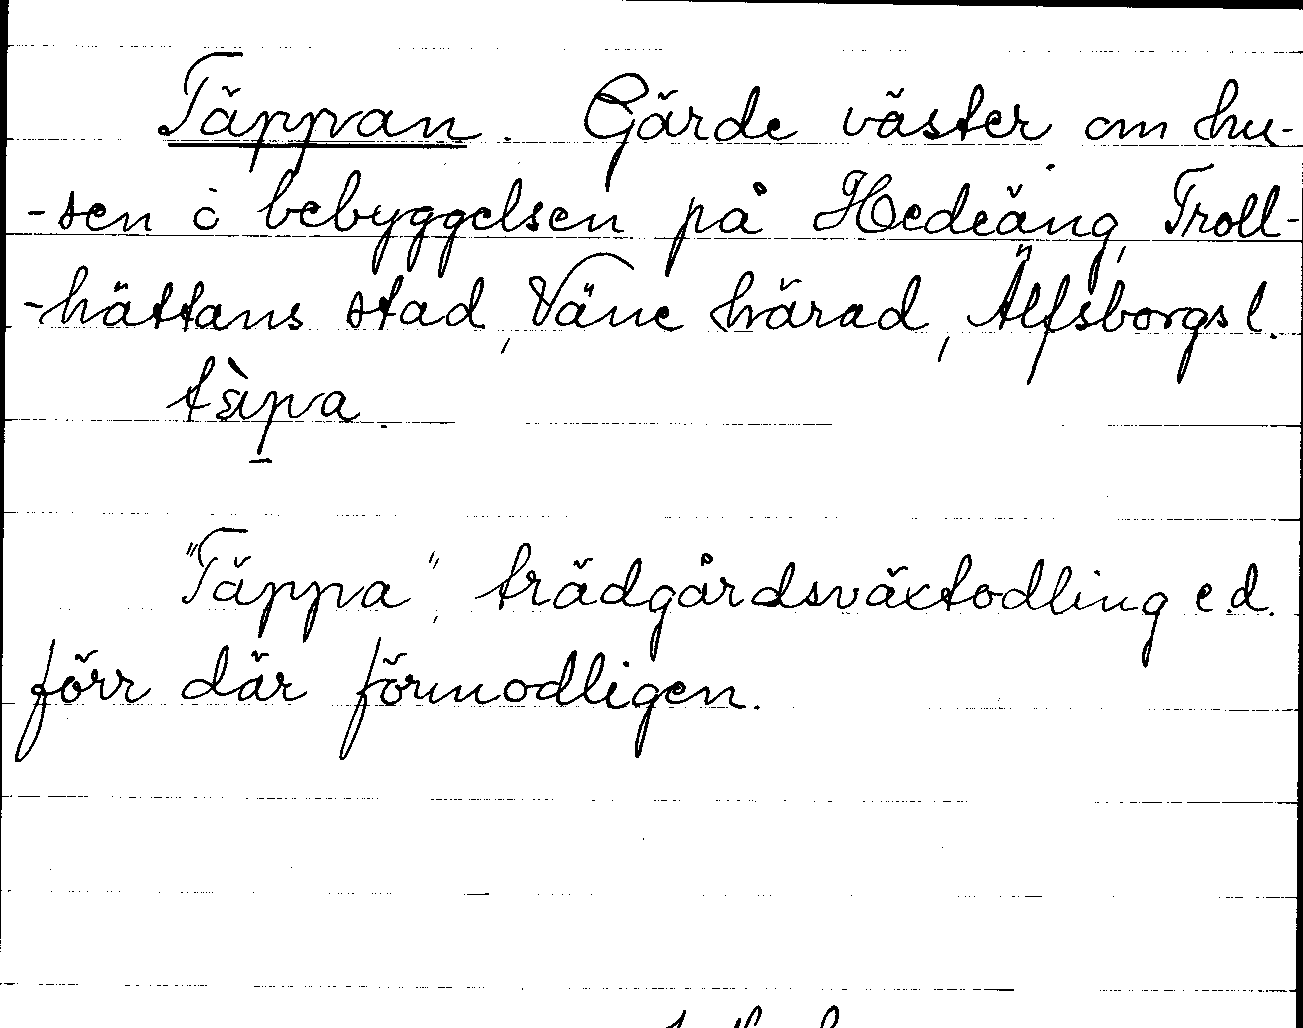 Täppan. Gärde väster om hu-
-sen i bebyggelsen på Hedeäng, Troll-
-hättans stad, Väne härad, Älfsborgs l.
"Täppa", trädgårdsväxtodling e.d.
förr där förmodligen.